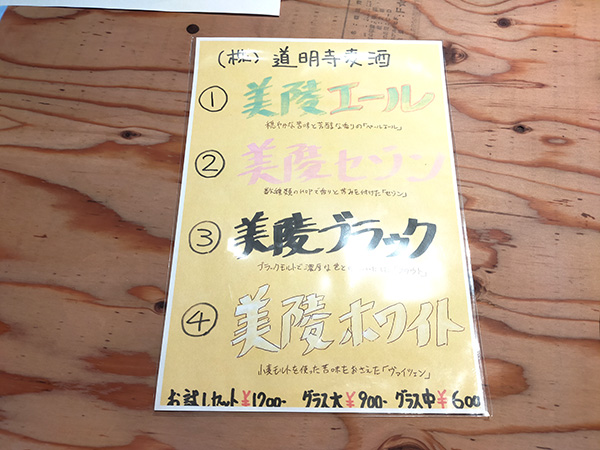 (株) 道明寺麦酒
① 美陵エール
穏やかな苦味と芳醇な香りの「ペールエール」
② 美陵セゾン
数種類のHOPで香りと苦みを付けた「セゾン」
③ 美陵ブラック
ブラックモルトで濃厚な
④ 美陵ホワイト
小麦モルトを使った苦味をおさえた「ヴァイツェン」
お試しセット¥1200- グラス大¥900- グラス中¥600